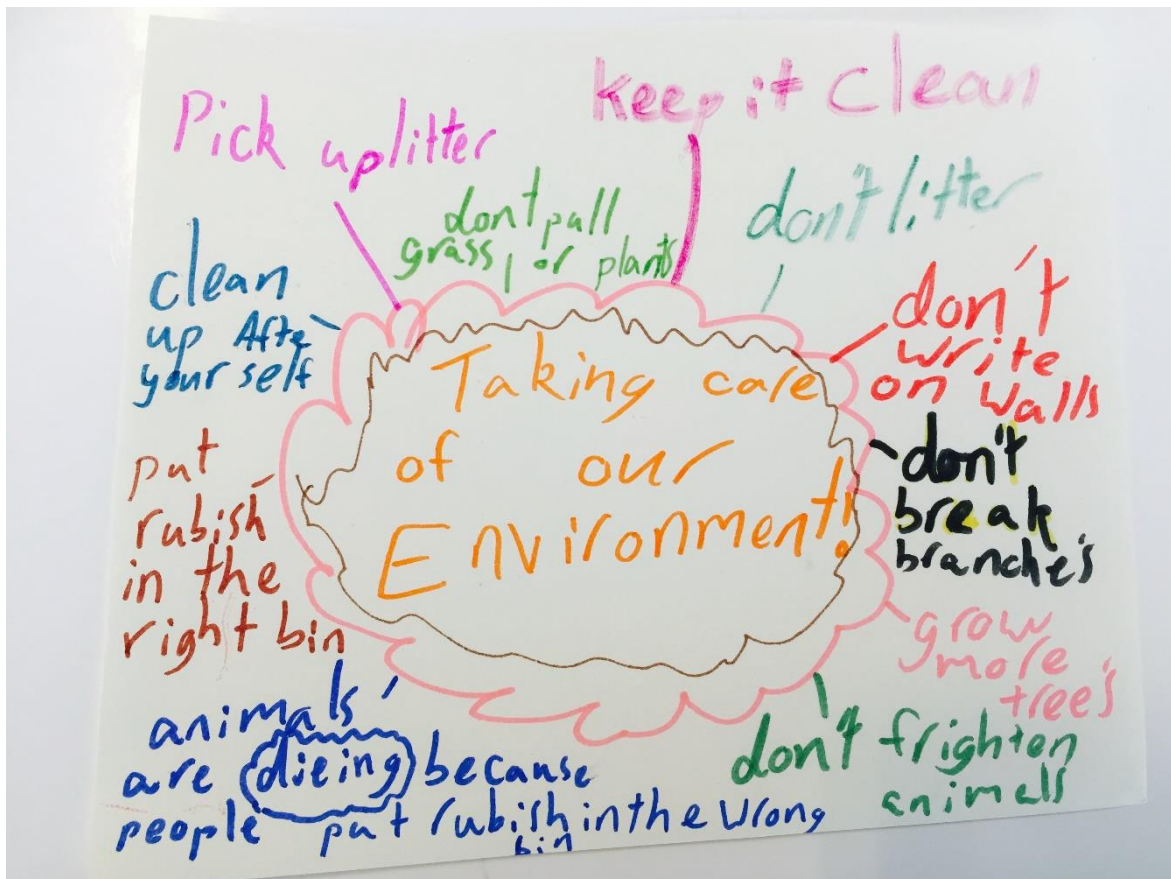 Keep it clean
Pick up litter
don't pull
grass, or plants
don't litter
clean
up Afte
your self
don't
write
on walls
Taking care
of our
Environment!
put
rubish
in the
right bin
don't
break
branche's
grow
more
tree's
animals
are dieing because
people put rubish in the wrong
bin
don't frighten
animals